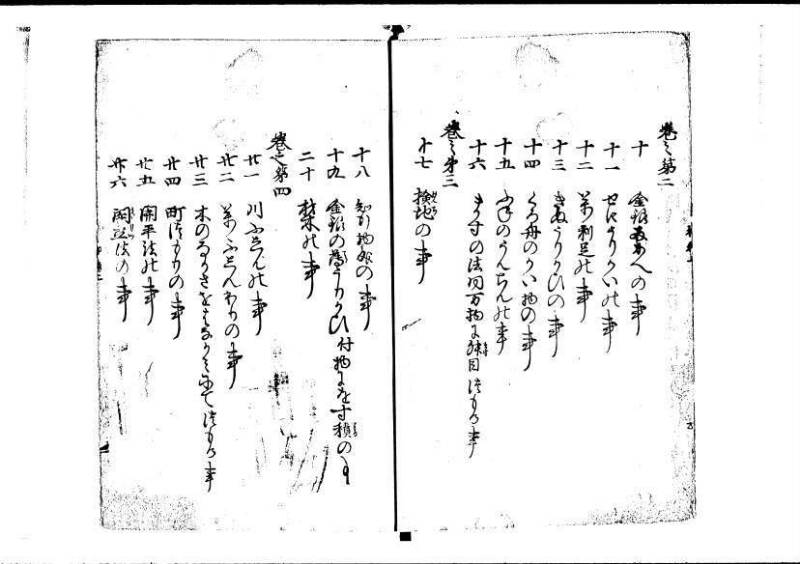 巻之第二
十 金銀両かへの事
十一 せにうりかいの事
十二 萬利足の事
十三 きぬうりかひの事
十四 くろ舟のかい物の事
十五 ふねのうんちんの事
十六 ます寸の法同万物に目つもる事
巻之第三
十七 検地の事
十八 知行物成の事
十九 金銀の うりかひ付物に寸積の事
二十 材木の事
巻之第四
廿一 川ふしんの事
廿二 萬ふしんわりの事
廿三 木のながさをはながみにてつもる事
廿四 町つもりの事
廿五 開平法の事
廿六 開立法の事